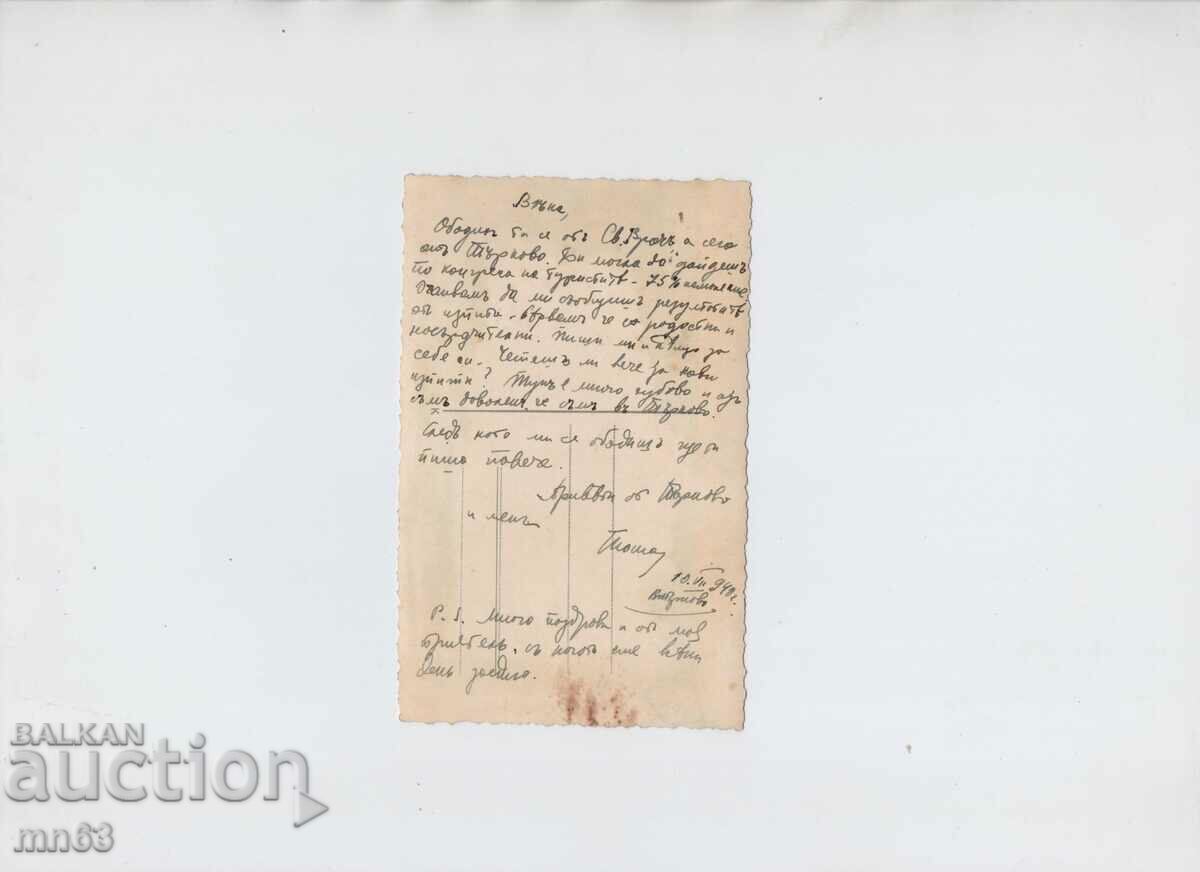 Вѣнѣ,
Обадихъ ти се отъ Св. Врачъ а сега
отъ Търново. Ти могла да дойдешъ
по конгреса на туриститѣ - 75%
Очаквамъ да ми съобщишъ резултатитѣ
отъ изпити - вѣрвамъ че са радостни и
насърдчителни. Пиши ми и нѣщо за
себе си. Четешъ ли вече за нови
изпити? Тукъ е много хубаво и азъ
съмъ доволенъ че съмъ въ Търново.
Следъ като ми се обадишъ ще ти
пиша повече.
Привѣти отъ Търново
и менъ
Тоша
10.VII 940 г.
В. Търново
P. S. Много поздрави и отъ моя
приятель, съ когото сме всѣки
день заедно.
BALKAN
auction
mn63